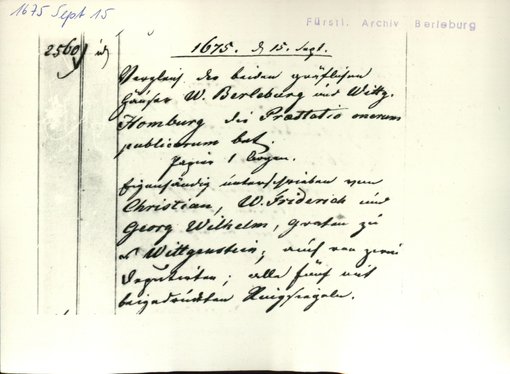 1675 Sept 15
Fürstl. Archiv Berleburg
2560
1675. d 15. Sept.
Vergleich der beiden gräflichen
Häuser W. Berleburg und Wittg.
Homburg die Praestatio onerum
publicorum bet.
Papier 1 Bogen.
Eigenhändig unterschrieben von
Christian, W. Friderich und
Georg Wilhelm, Grafen zu
Wittgenstein, auch von zwei
Deputirten; alle fünf mit
beigedrückten Ringsiegeln.